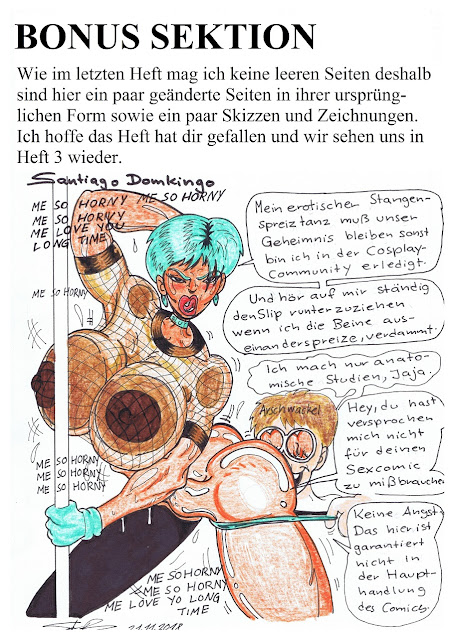 BONUS SEKTION
Wie im letzten Heft mag ich keine leeren Seiten deshalb
sind hier ein paar geänderte Seiten in ihrer ursprüng-
lichen Form sowie ein paar Skizzen und Zeichnungen.
Ich hoffe das Heft hat dir gefallen und wir sehen uns in
Heft 3 wieder.
Santiago Domkingo
ME SO HORNY ME SO HORNY
ME SO HORNY
ME LOVE YOU
LONG TIME
ME SO HORNY
Mein erotischer Stangen-
spreiztanz muß unser
Geheimnis bleiben sonst
bin ich in der Cosplay-
Community erledigt.
Und hör auf mir ständig
den Slip runterzuziehen
wenn ich die Beine aus-
einanderspreize, verdammt.
Ich mach nur anato-
mische Studien, Jaja.
Arschwackel
Hey, du hast
versprochen
mich nicht
für deinen
Sexcomic
zu mißbrauchen
ME SO HORNY
ME SO HORNY
ME SO HORNY
Keine Angst
Das hier ist
garantiert
nicht in
der Haupt-
handlung
des Comics.
ME SO HORNY
ME SO HORNY
ME LOVE YO LONG
TIME
21.11.2018